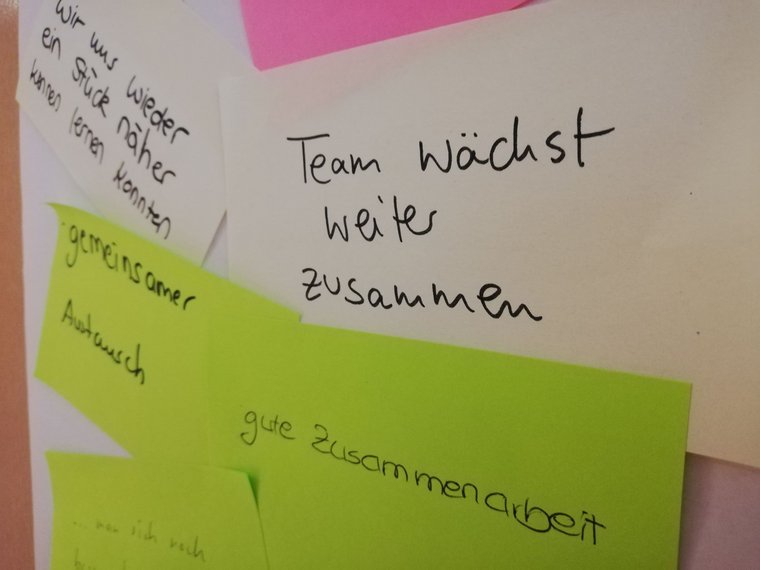 wir uns wieder
ein Stück näher
kennen lernen konnten
Team wächst
weiter
zusammen
gemeinsamer
Austausch
gute Zusammenarbeit
... man sich noch